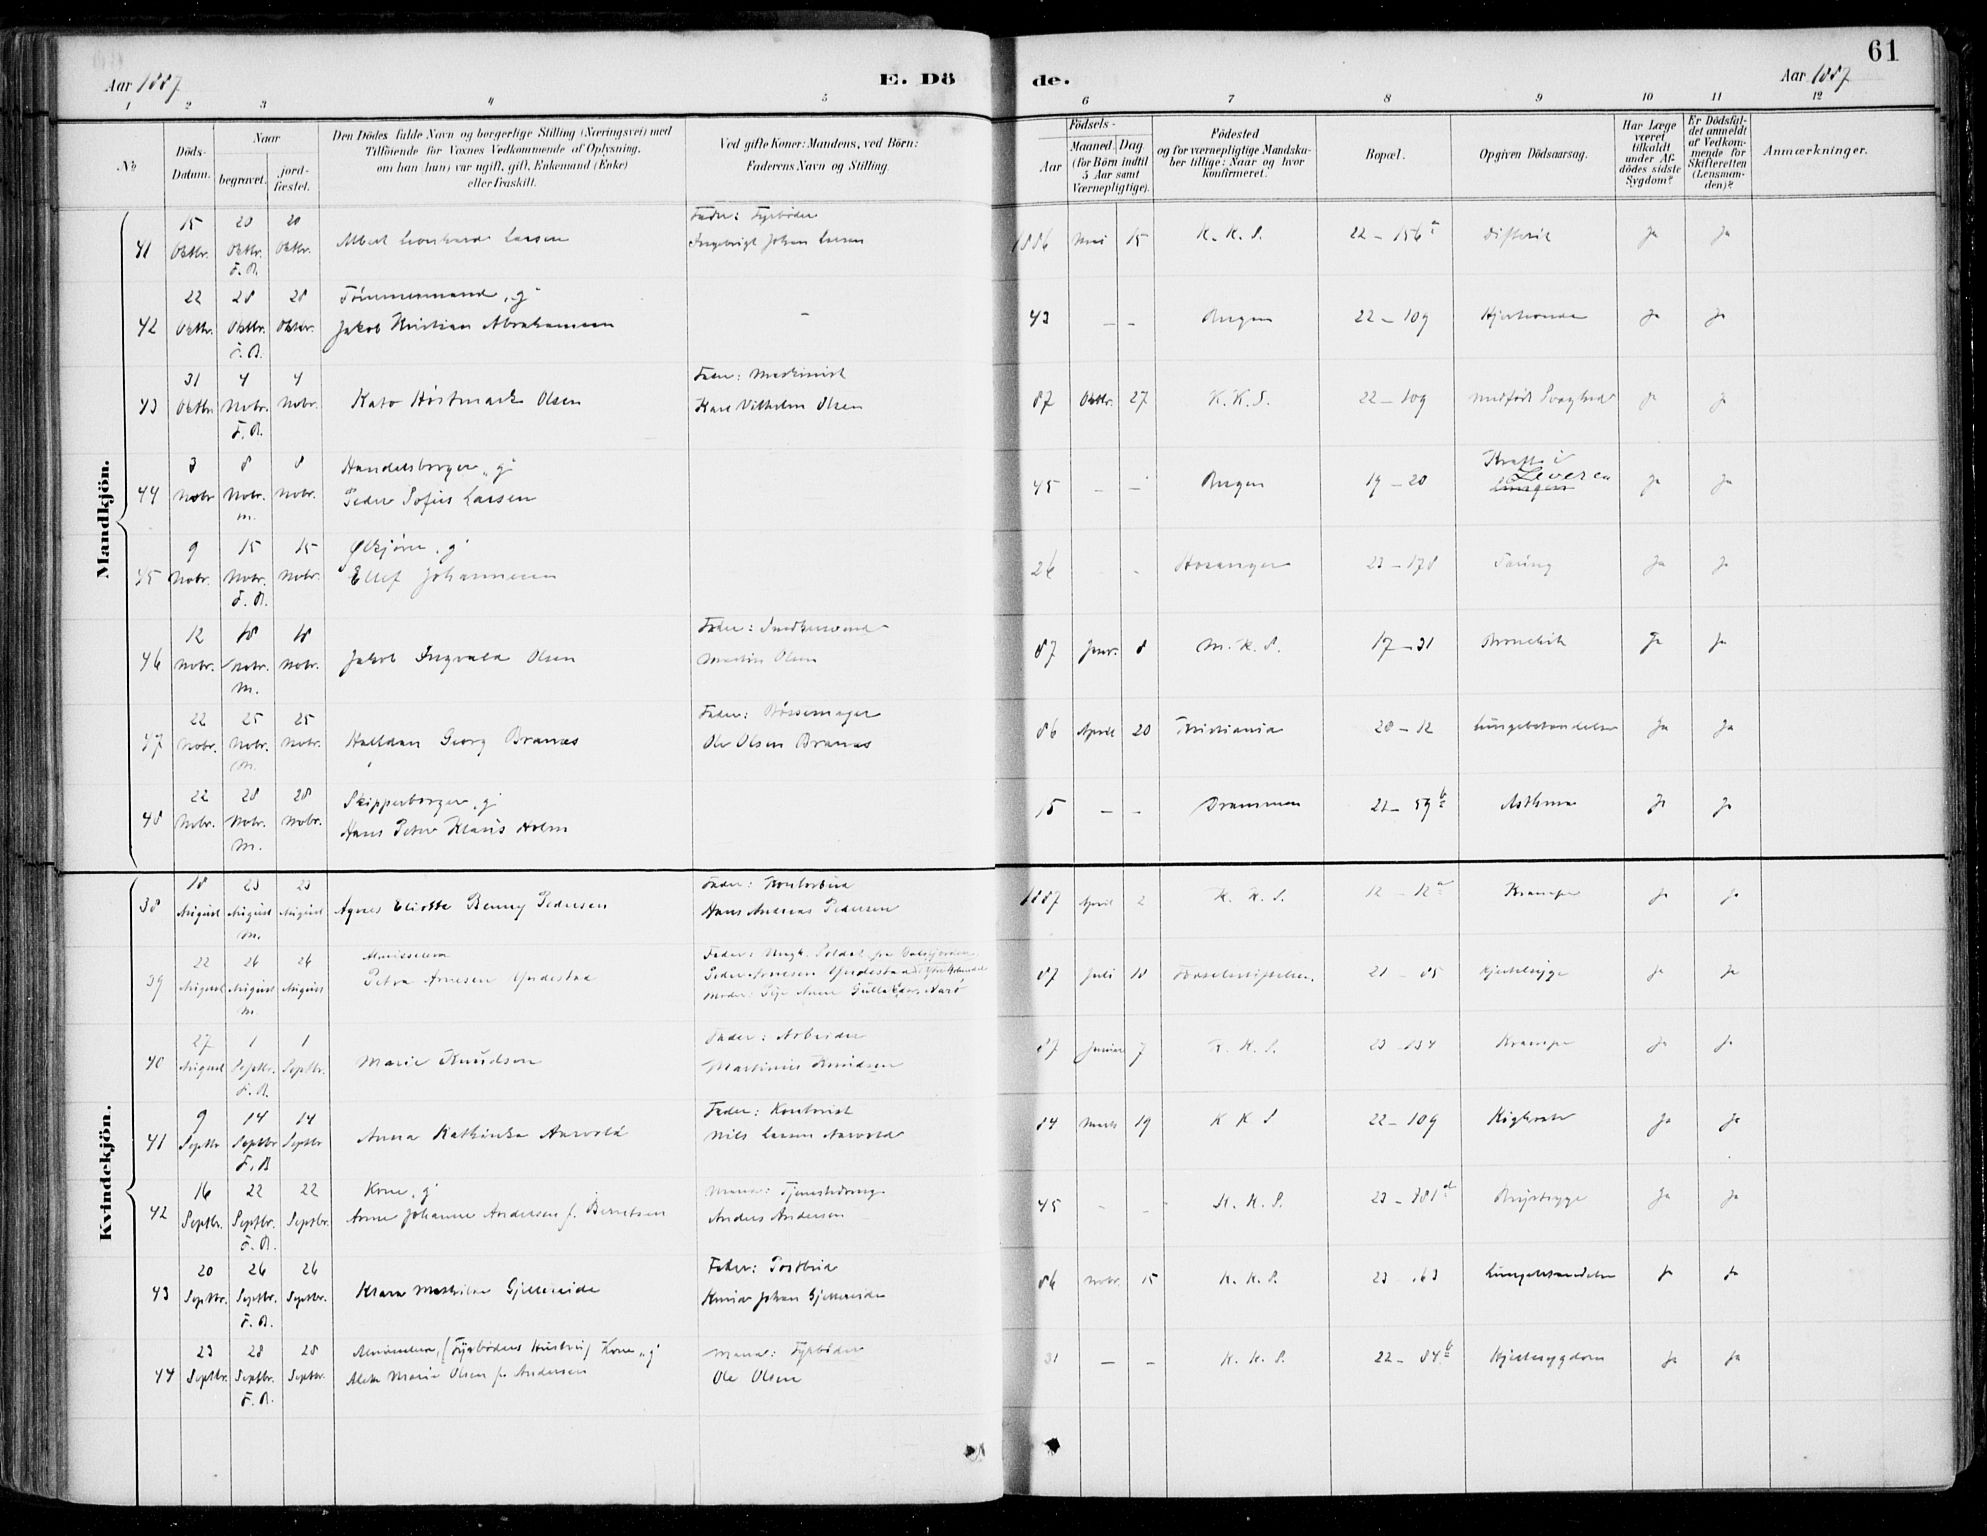 61
Aar 1887
E. Dö
de.
Aar 1887
1 2 3 4 5 6 7 8 9 10 11 12
No
Döds-Datum.
Naar
begravet.
jord-fæstet.
Den Dödes fulde Navn og borgerlige Stilling (Næringsvei) med
Tilföiende for Voxnes Vedkommende af Oplysning,
om han (hun) var ugift, gift, Enkemand (Enke)
eller fraskilt.
Ved gifte Koner: Mandens, ved Börn:
Faderens Navn og Stilling.
Födsels-
Aar
Maaned.
Dag
(for Börn indtil
5 Aar samt
Værnepligtige).
Födested
og for værnepligtige Mandska-
ber tillige: Naar og hvor
konfirmeret.
Bopæl.
Opgiven Dödsaarsag.
Har Læge
været
tilkaldt
under Af-
dödes sidste
Sygdom?
Er Dödsfal-
det anmeldt
af Vedkom-
mende for
Skifteretten
(Lensman-
den)?
Anmærkninger.
Mandkjön.
15 20 20 Fader: Fyrbøder
41 Oktbr. Oktbr. Oktbr. Albert Leonhard Larsen Ingebrigt Johan Larsen 1886 Mai 15 K. K. S. 22 – 156 a Difterit Ja Ja
F. A.
22 28 28 Tømmermand, "g"
42 Oktbr. Oktbr. Oktbr. Jakob Kristian Abrahamsen – 43 – – Bergen 22 – 109 Ja Ja
F. A.
31 4 4 Fader: Maskinist
43 Oktbr Nobr. Nobr. Kato Høstmark Olsen Karl Vilhelm Olsen 87 Oktbr. 27 K. K. S. 22 – 109 medfødt Svaghed Ja Ja
F. A.
3 8 8 Handelsborger, "g" Kræft i
44 Nobr Nobr. Nobr. Peder Sofus Larsen 45 – – Bergen 19 – 20 Leveren Ja Ja
M.
9 15 15 "g"
45 Nobr. Nobr. Nobr. Ellef Johannesen 26 – – Hosanger 23 – 178 Tæring Ja Ja
F. A.
12 18 18 Fader: Snedkersvend
46 Nobr. Nobr. Nobr. Jakob Ingvald Olsen Martin Olsen 87 Janr. 8 M. K. S. 17 – 31 Bronchit Ja Ja
M.
22 25 25 Fader: Bøssemager
47 Nobr. Nobr. Nobr. Halfdan Georg Branæs Ole Olsen Branæs 86 April 20 Kristiania 20 – 12 Lungebetændelse Ja Ja
M.
22 28 28 Skipperborger, "g"
48 Nobr. Nobr. Nobr. Hans Peter Klaus Holm 15 – – Drammen 22 – 59 b Asthma Ja Ja
M.
Kvindekjön.
18 23 23 Fader: Kontorbud
38 August August August Agnes Benny Pedersen Hans Andreas Pedersen 1887 April 2 K. K. S. 12 – 12 a Krampe Ja Ja
M.
22 26 26 Fader: Ungk. Soldat fra
39 August August August Petra Arnesen Peder Arnesen 87 Juli 18 Fødselsstiftelsen. 21 – 85 Hjertesyge Ja Ja
M. Moder: Pige Anne
27 1 1 Fader: Arbeider
40 August Septbr. Septbr. Marie Knudsen Martinus Knudsen 87 Januar 7 K. K. S. 23 – 134 Krampe Ja Ja
F. A.
9 14 14 Fader: Kontorist
41 Septbr Septbr Septbr Anna Kathinka Aarvold Nils Larsen Aarvold 84 Marts 19 K K S 22 – 109 Kighoste Ja Ja
F. A
16 22 22 Kone, "g" Mand: Tjenestedreng
42 Septbr. Septbr. Septbr. Anne Johanne Andersen f. Berntsen Anders Andersen 45 – – K. K. S. 23 – 381 d Brystsyge Ja Ja
F. A.
20 26 26 Fader: Postbud
43 Septbr. Septbr. Septbr. Klara Mathilde Gjellereide Knud Johan Gjellereide 86 Nobr. 15 K. K. S. 23 – 163 Lungebetændelse Ja Ja
F. A.
23 28 28 (Fyrbøders Hustru) Kone, "g" Mand: Fyrbøder
44 Septbr. Septbr. Septbr. Marie Olsen f. Andersen Ole Olsen 31 – – K. K. S. 22 – 84 b Hjertesygdom Ja Ja
F. A.